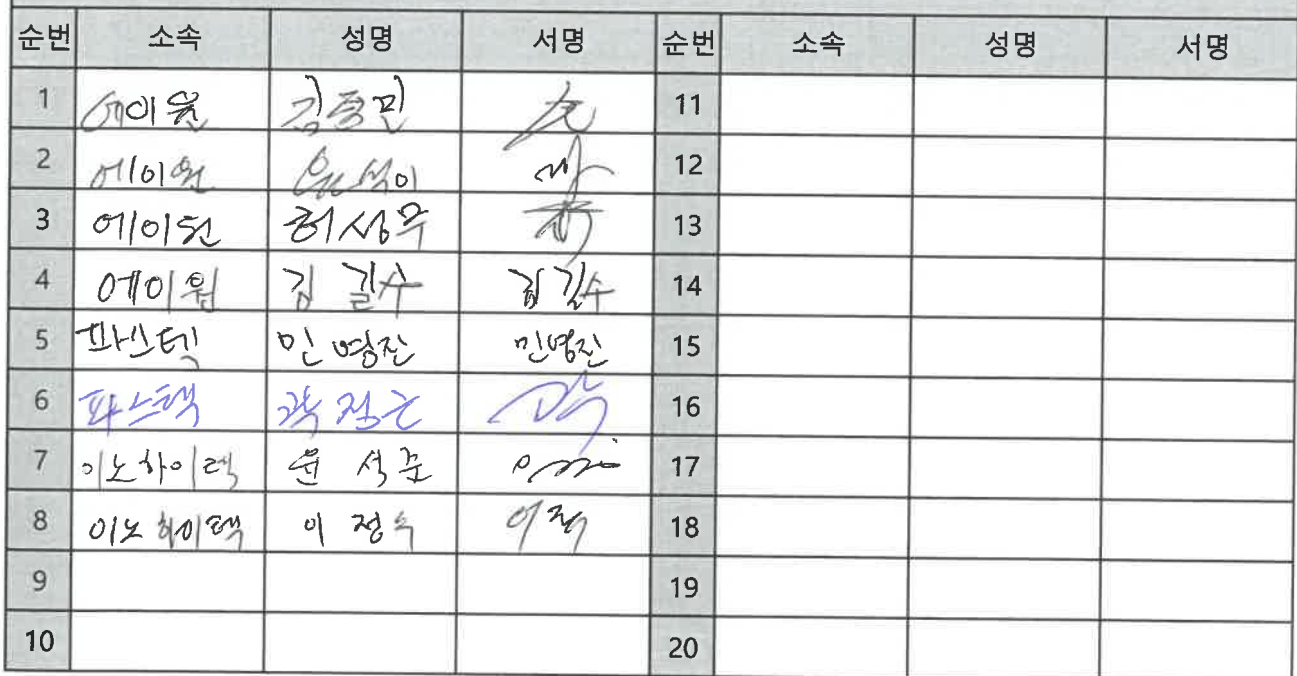 순번 소속 성명 서명 순번 소속 성명 서명
1 에이원 김종민 11
2 에이원 윤석이 12
3 에이원 허성무 13
4 에이원 김길수 김길수 14
5 파스텍 민영진 민영진 15
6 파스텍 곽정근 곽 16
7 이노하이텍 윤석준 17
8 이노하이텍 이정수 18
9 19
10 20